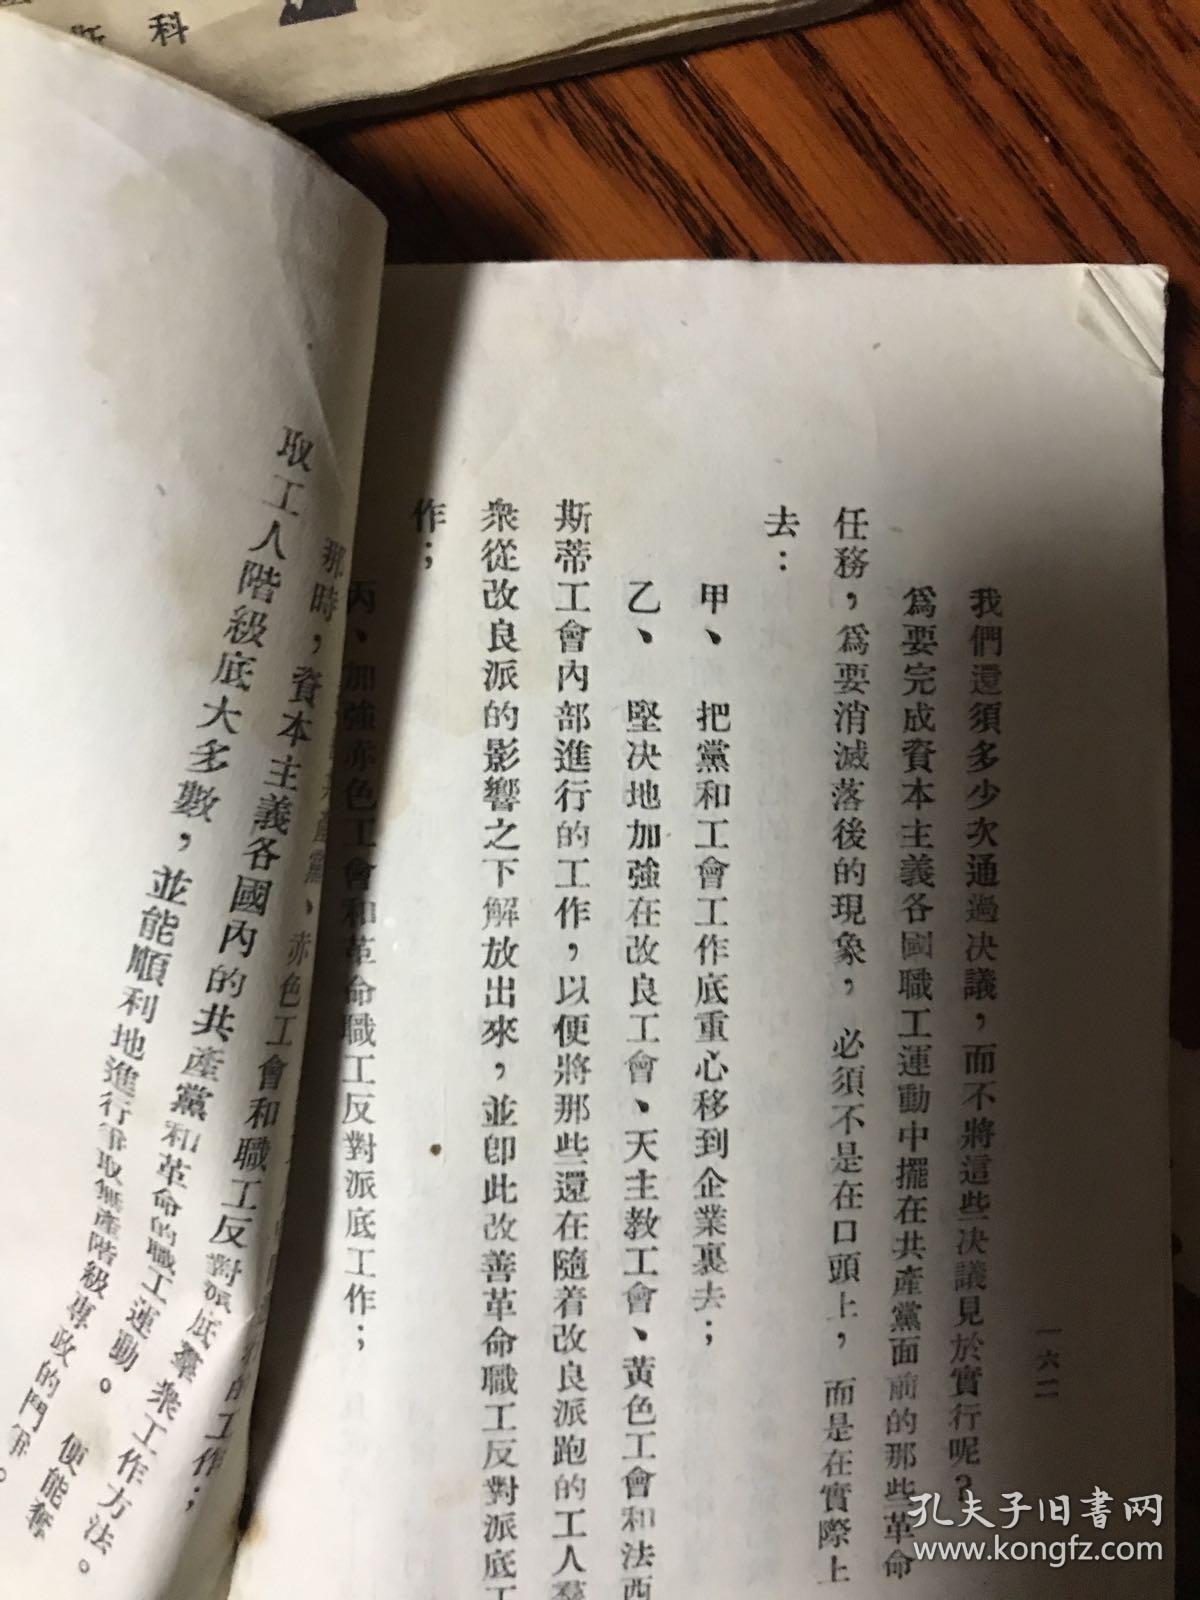 科
一六二
我們還須多少次通過决議，而不將這些决議見於實行呢？
爲要完成資本主義各國職工運動中擺在共產黨面前的那些革命
任務，爲要消滅落後的現象，必須不是在口頭上，而是在實際上
去：
甲、把黨和工會工作底重心移到企業裏去；
乙、堅决地加強在改良工會、天主教工會、黃色工會和法西
斯蒂工會內部進行的工作，以便將那些還在隨着改良派跑的工人羣
衆從改良派的影響之下解放出來，並卽此改善革命職工反對派底工
作；
丙、加強赤色工會和革命職工反對派底工作；
赤色工會和職工反對派底羣衆工作方法。
那時，資本主義各國內的共產黨和革命的職工運動 便能奪
取工人階級底大多數，並能順利地進行爭取無產階級專政的鬥爭。
孔夫子旧書网
www.kongfz.com